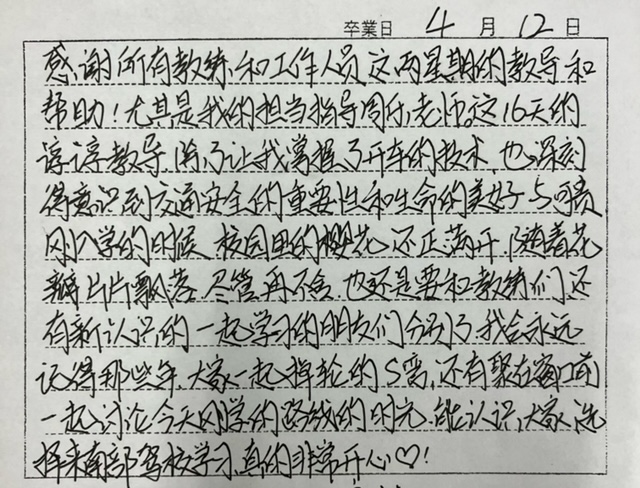 卒業日 4 月 12 日
感谢所有教练和工作人员这两星期的教导和
帮助！尤其是我的担当指导周乐老师。这16天的
谆谆教导，除了让我掌握了开车的技术，也深刻
得意识到交通安全的重要性和生命的美好与可贵
刚入学的时候，校园里的樱花还正满开，随着花
瓣片片飘落，尽管再不舍，也还是要和教练们，还
有新认识的一起学习的朋友们分别了，我会永远
记得那些年大家一起掉轮的S弯，还有聚在窗口前
一起讨论今天刚学的路线的时光，能认识大家，选
择来南部驾校学习，真的非常开心♡！